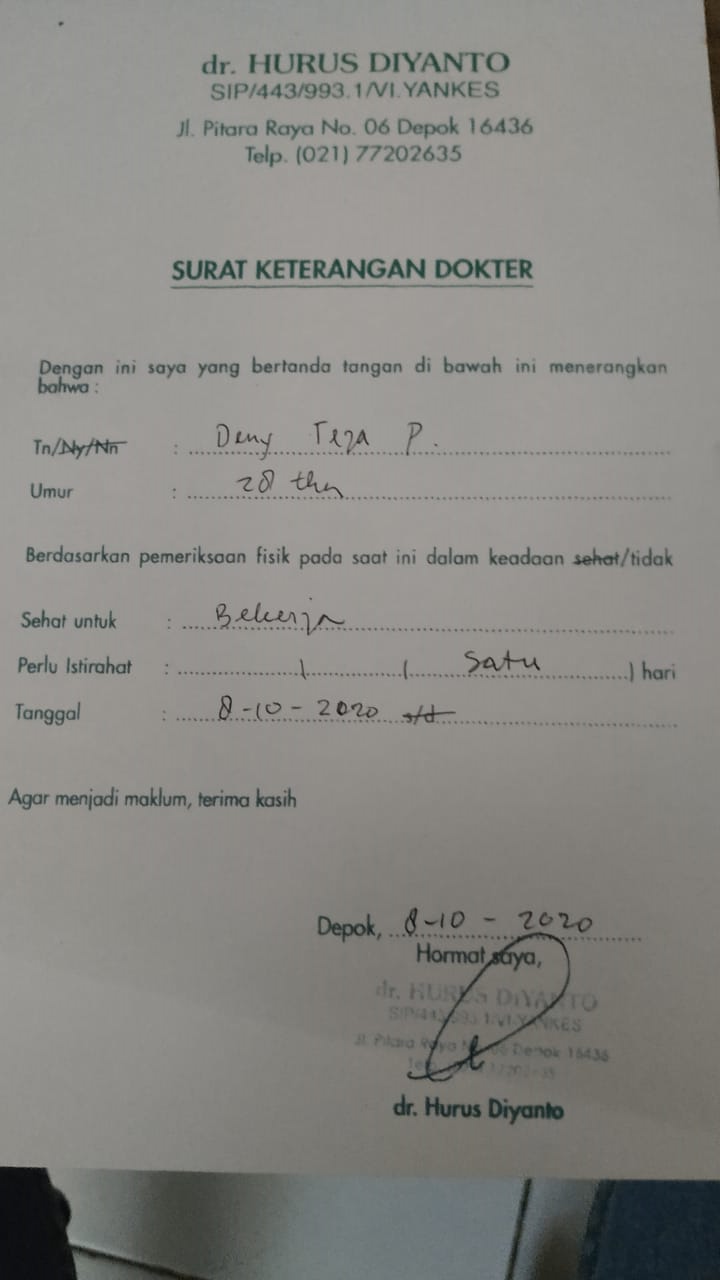 dr. HURUS DIYANTO
SIP/443/993.1/VI.YANKES
Jl. Pitara Raya No. 06 Depok 16436
Telp. (021) 77202635
SURAT KETERANGAN DOKTER
Dengan ini saya yang bertanda tangan di bawah ini menerangkan
bahwa :
Tn/Ny/Nn : Deny Teza P.
Umur : 28 thn
Berdasarkan pemeriksaan fisik pada saat ini dalam keadaan sehat/tidak
Sehat untuk : Bekerja
Perlu Istirahat : 1 ( Satu ) hari
Tanggal : 8-10-2020 s/d
Agar menjadi maklum, terima kasih
Depok, 8-10-2020
Hormat saya,
dr. HURUS DIYANTO
SIP/443/993.1/VI.YANKES
Jl. Pitara Raya No. 06 Depok 16436
dr. Hurus Diyanto